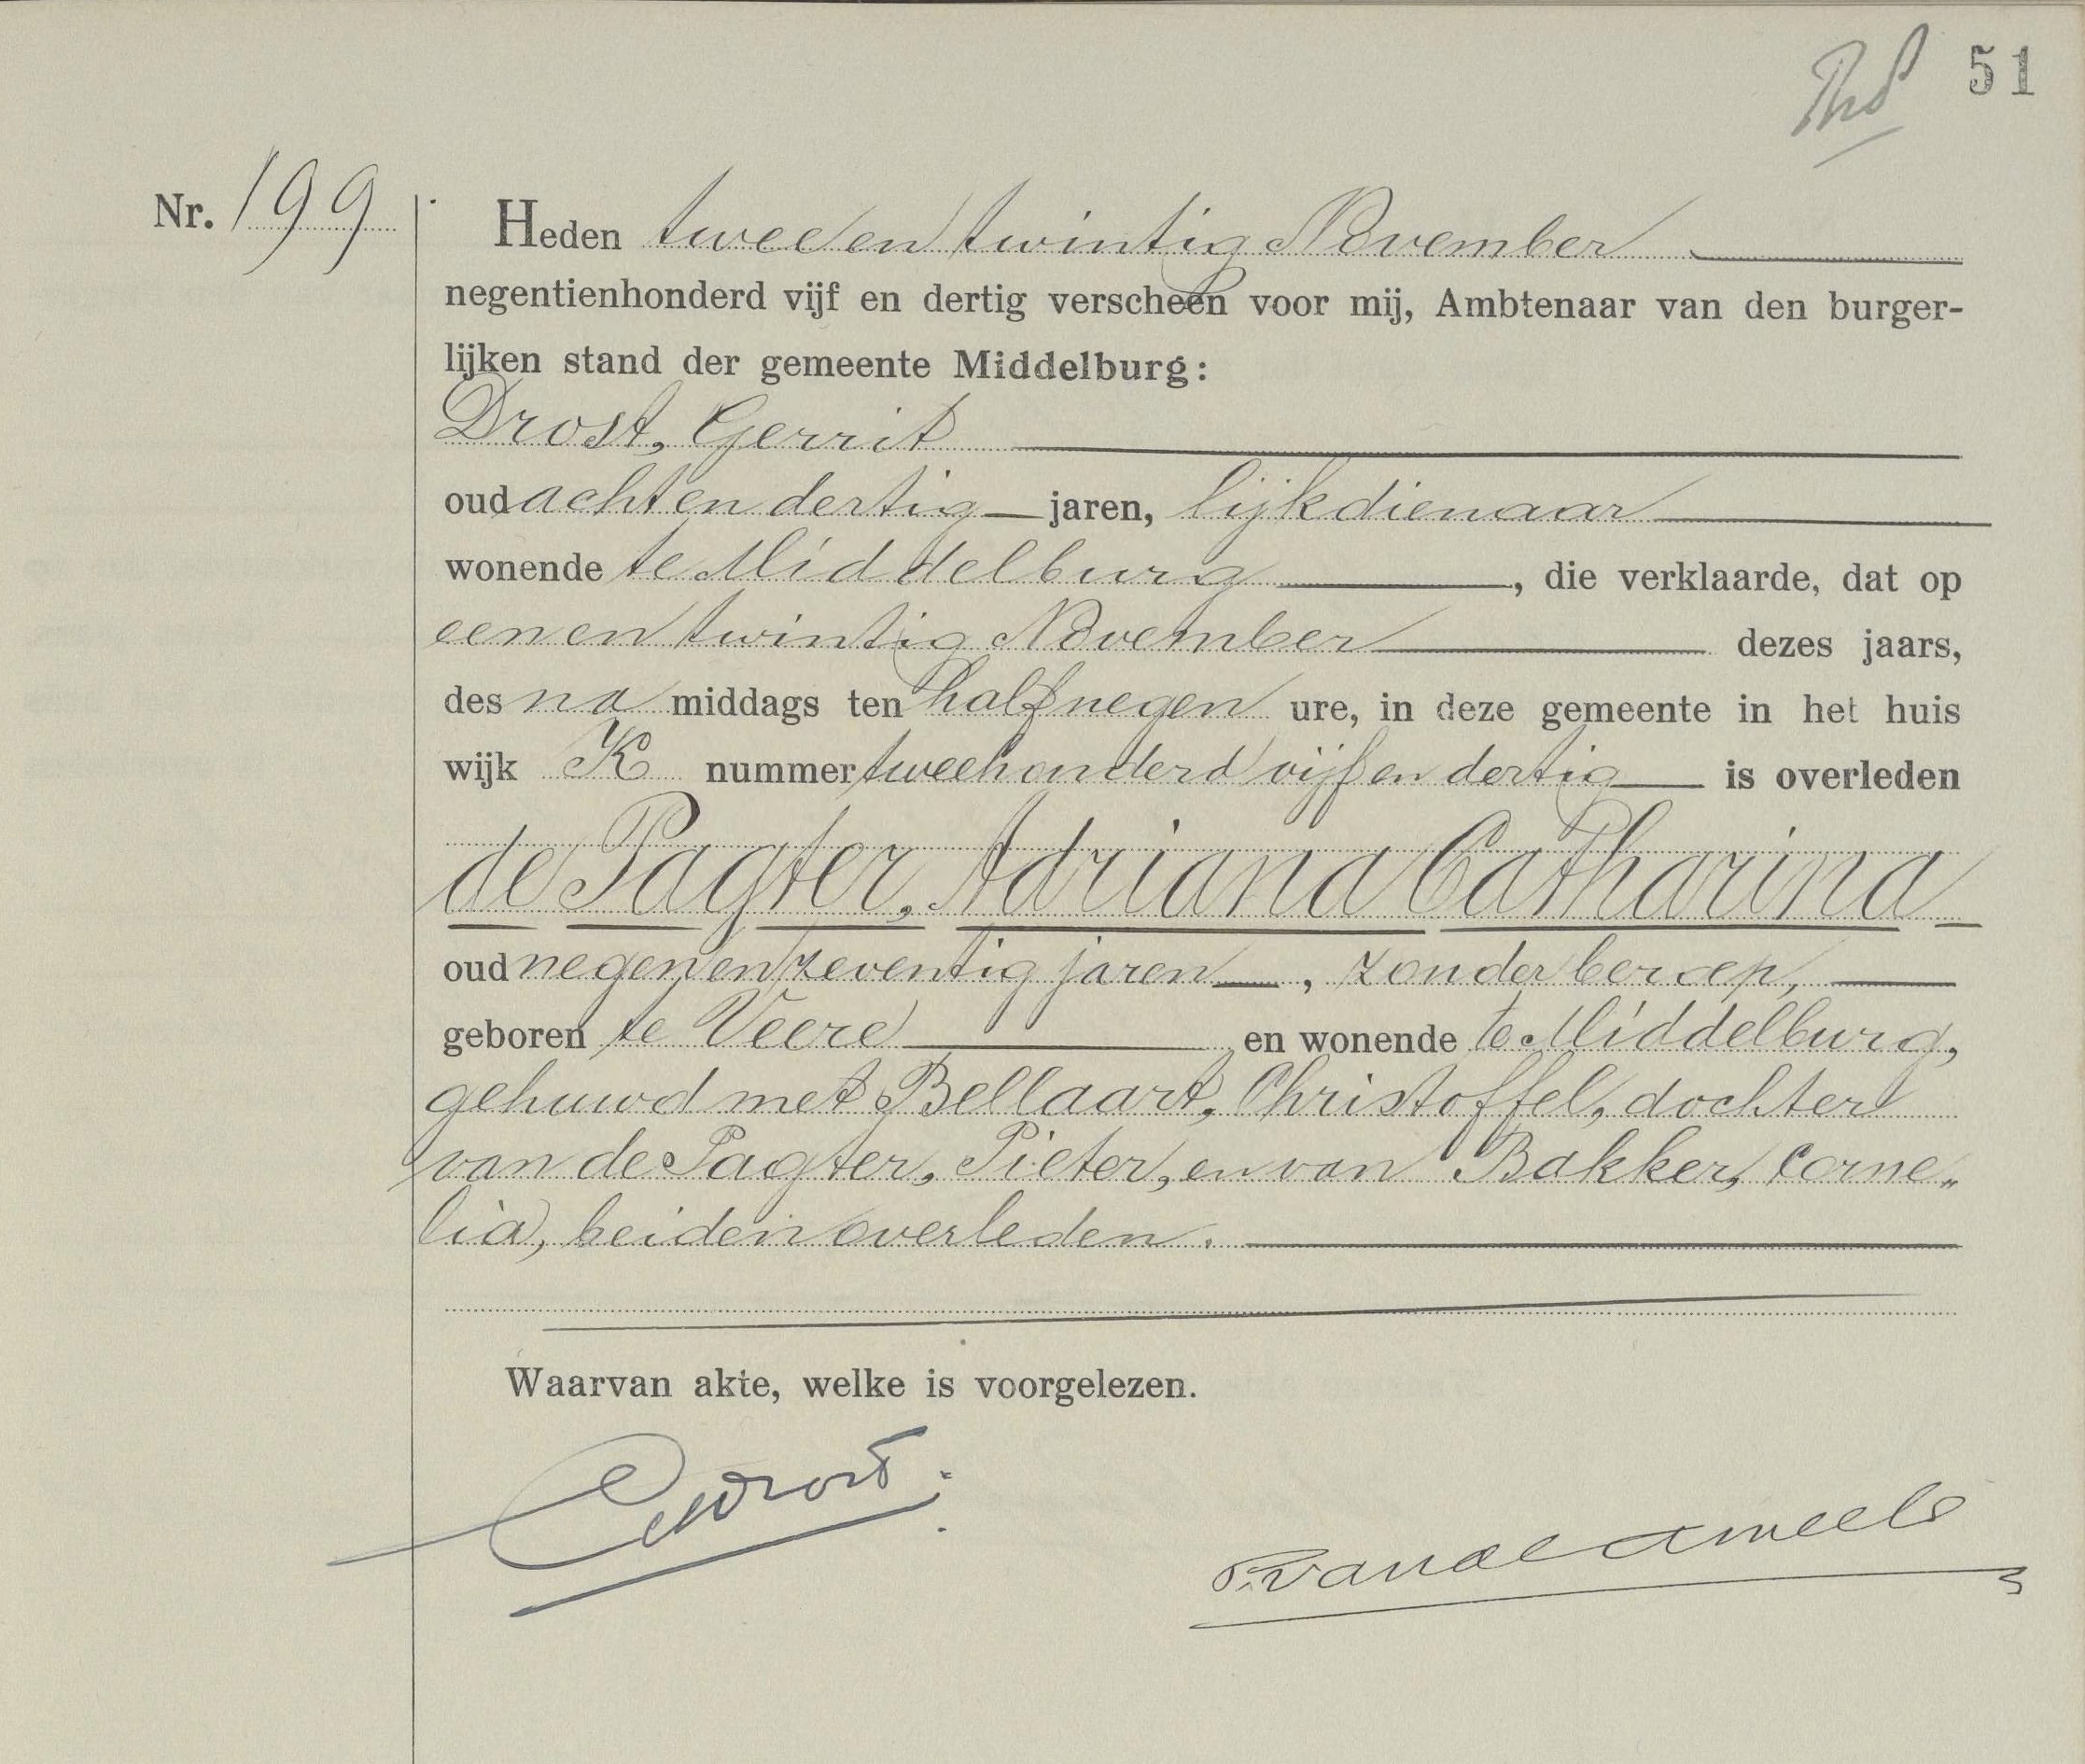 51
Nr. 199
Heden twee en twintig November
negentienhonderd vijf en dertig verscheen voor mij, Ambtenaar van den burger-
lijken stand der gemeente Middelburg:
Drost, Gerrit
oud acht en dertig jaren, lijkdienaar
wonende te Middelburg, die verklaarde, dat op
een en twintig November dezes jaars,
des na middags ten half negen ure, in deze gemeente in het huis
wijk K nummer tweehonderd vijf en dertig is overleden
de Pagter, Adriana Catharina
oud negen en zeventig jaren, zonder beroep,
geboren te Veere en wonende te Middelburg,
gehuwd met Bellaart, Christoffel, dochter
van de Pagter, Pieter, en van Bakker, Corne„
lia, beiden overleden.
Waarvan akte, welke is voorgelezen.
GDrost.